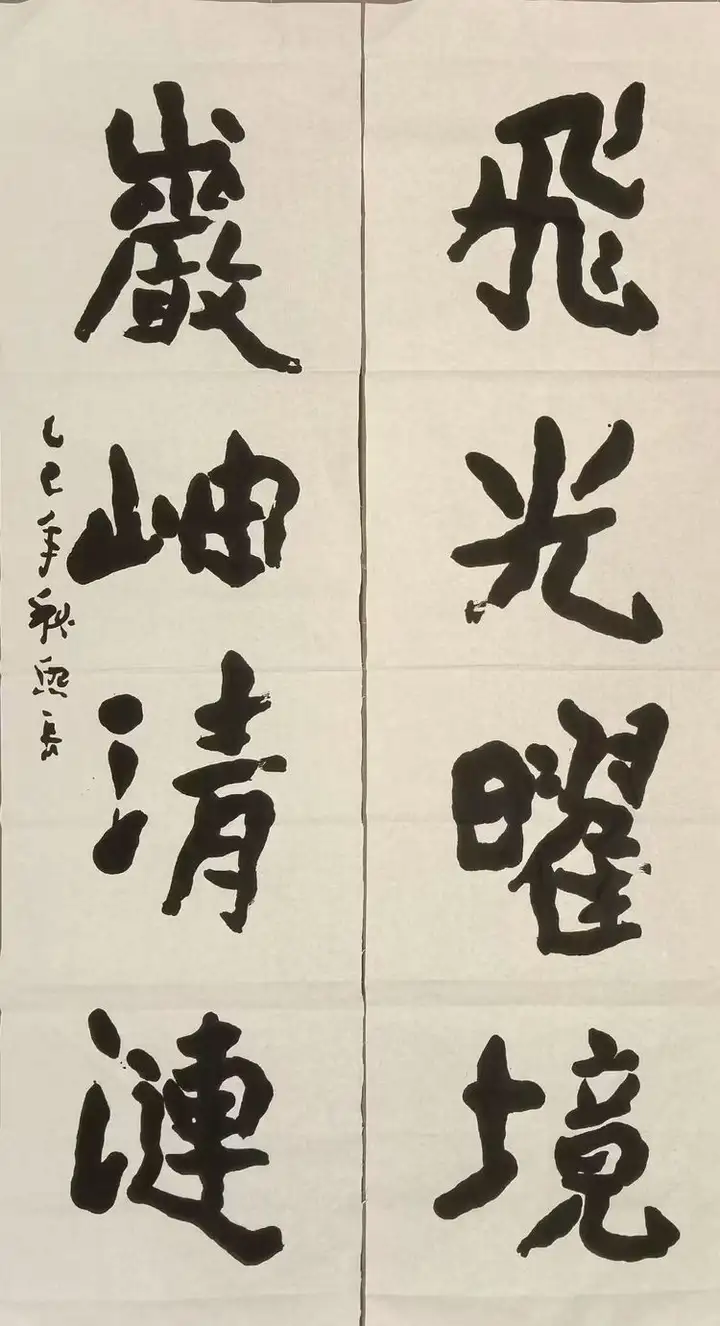 飛光曜境
巖岫清漣
乙巳年秋